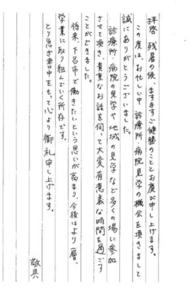 拝啓 残暑の候、ますますご健勝のこととお慶び申し上げます。
この度はお忙しい中、診療所・病院見学の機会を頂きまして
誠にありがとうございました。
診療所や病院の見学や地域の見学など多くの場に参加
させて頂き、貴重なお話を伺って大変有意義な時間を過ごす
ことができました。
将来、下呂市で働きたいという思いが高まり、今後はより一層、
学業に取り組んでいく所存です。
とり急ぎ書中をもって心より御礼申し上げます。
敬具